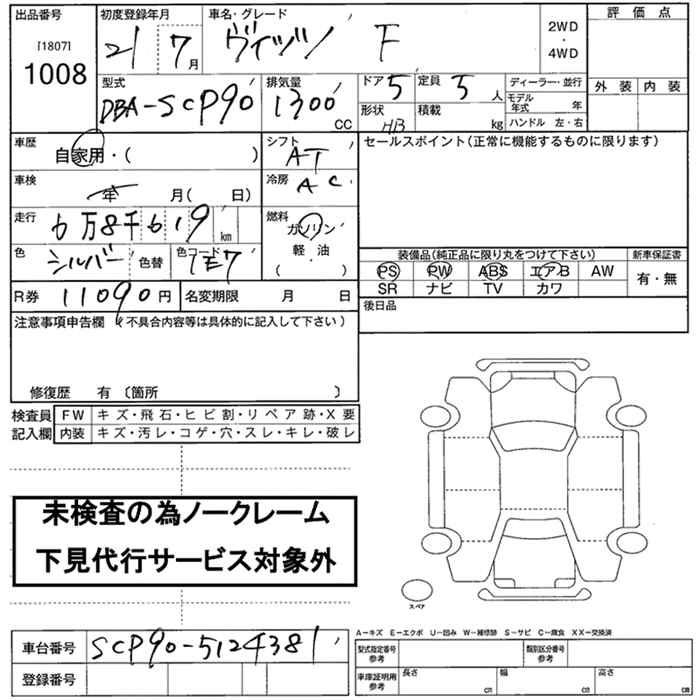 出品番号 初度登録年月 車名・グレード 評価点
[1807] 21 7月 ヴィッツ F 2WD・4WD
1008
型式 排気量 ドア 5 定員 5人 ディーラー・並行 外装 内装
DBA-SCP90 1300cc 形状 HB 積載 kg モデル年式 年
ハンドル 左・右
車歴 自家用・( ) シフト AT セールスポイント(正常に機能するものに限ります)
車検 年 月( 日) 冷房 AC
走行 6万8千619km 燃料 ガソリン
色 シルバー 色替 色コード 1E7 軽・油 ( )
装備品(純正品に限り丸をつけて下さい) 新車保証書
PS PW ABS エアB AW 有・無
SR ナビ TV カワ
R券 11090円 名変期限 月 日 後日品
注意事項申告欄 (不具合内容等は具体的に記入して下さい)
修復歴 有 〔箇所 〕
検査員 FW キズ・飛石・ヒビ割・リペア跡・X要
記入欄 内装 キズ・汚レ・コゲ・穴・スレ・キレ・破レ
未検査の為ノークレーム
下見代行サービス対象外
スペア
車台番号 SCP90-5124381
登録番号
A-キズ E-エクボ U-凹み W-補修跡 S-サビ C-腐食 XX-交換済
型式指定番号 参考 類別区分番号 参考
車庫証明用 参考 長さ cm 幅 cm 高さ cm